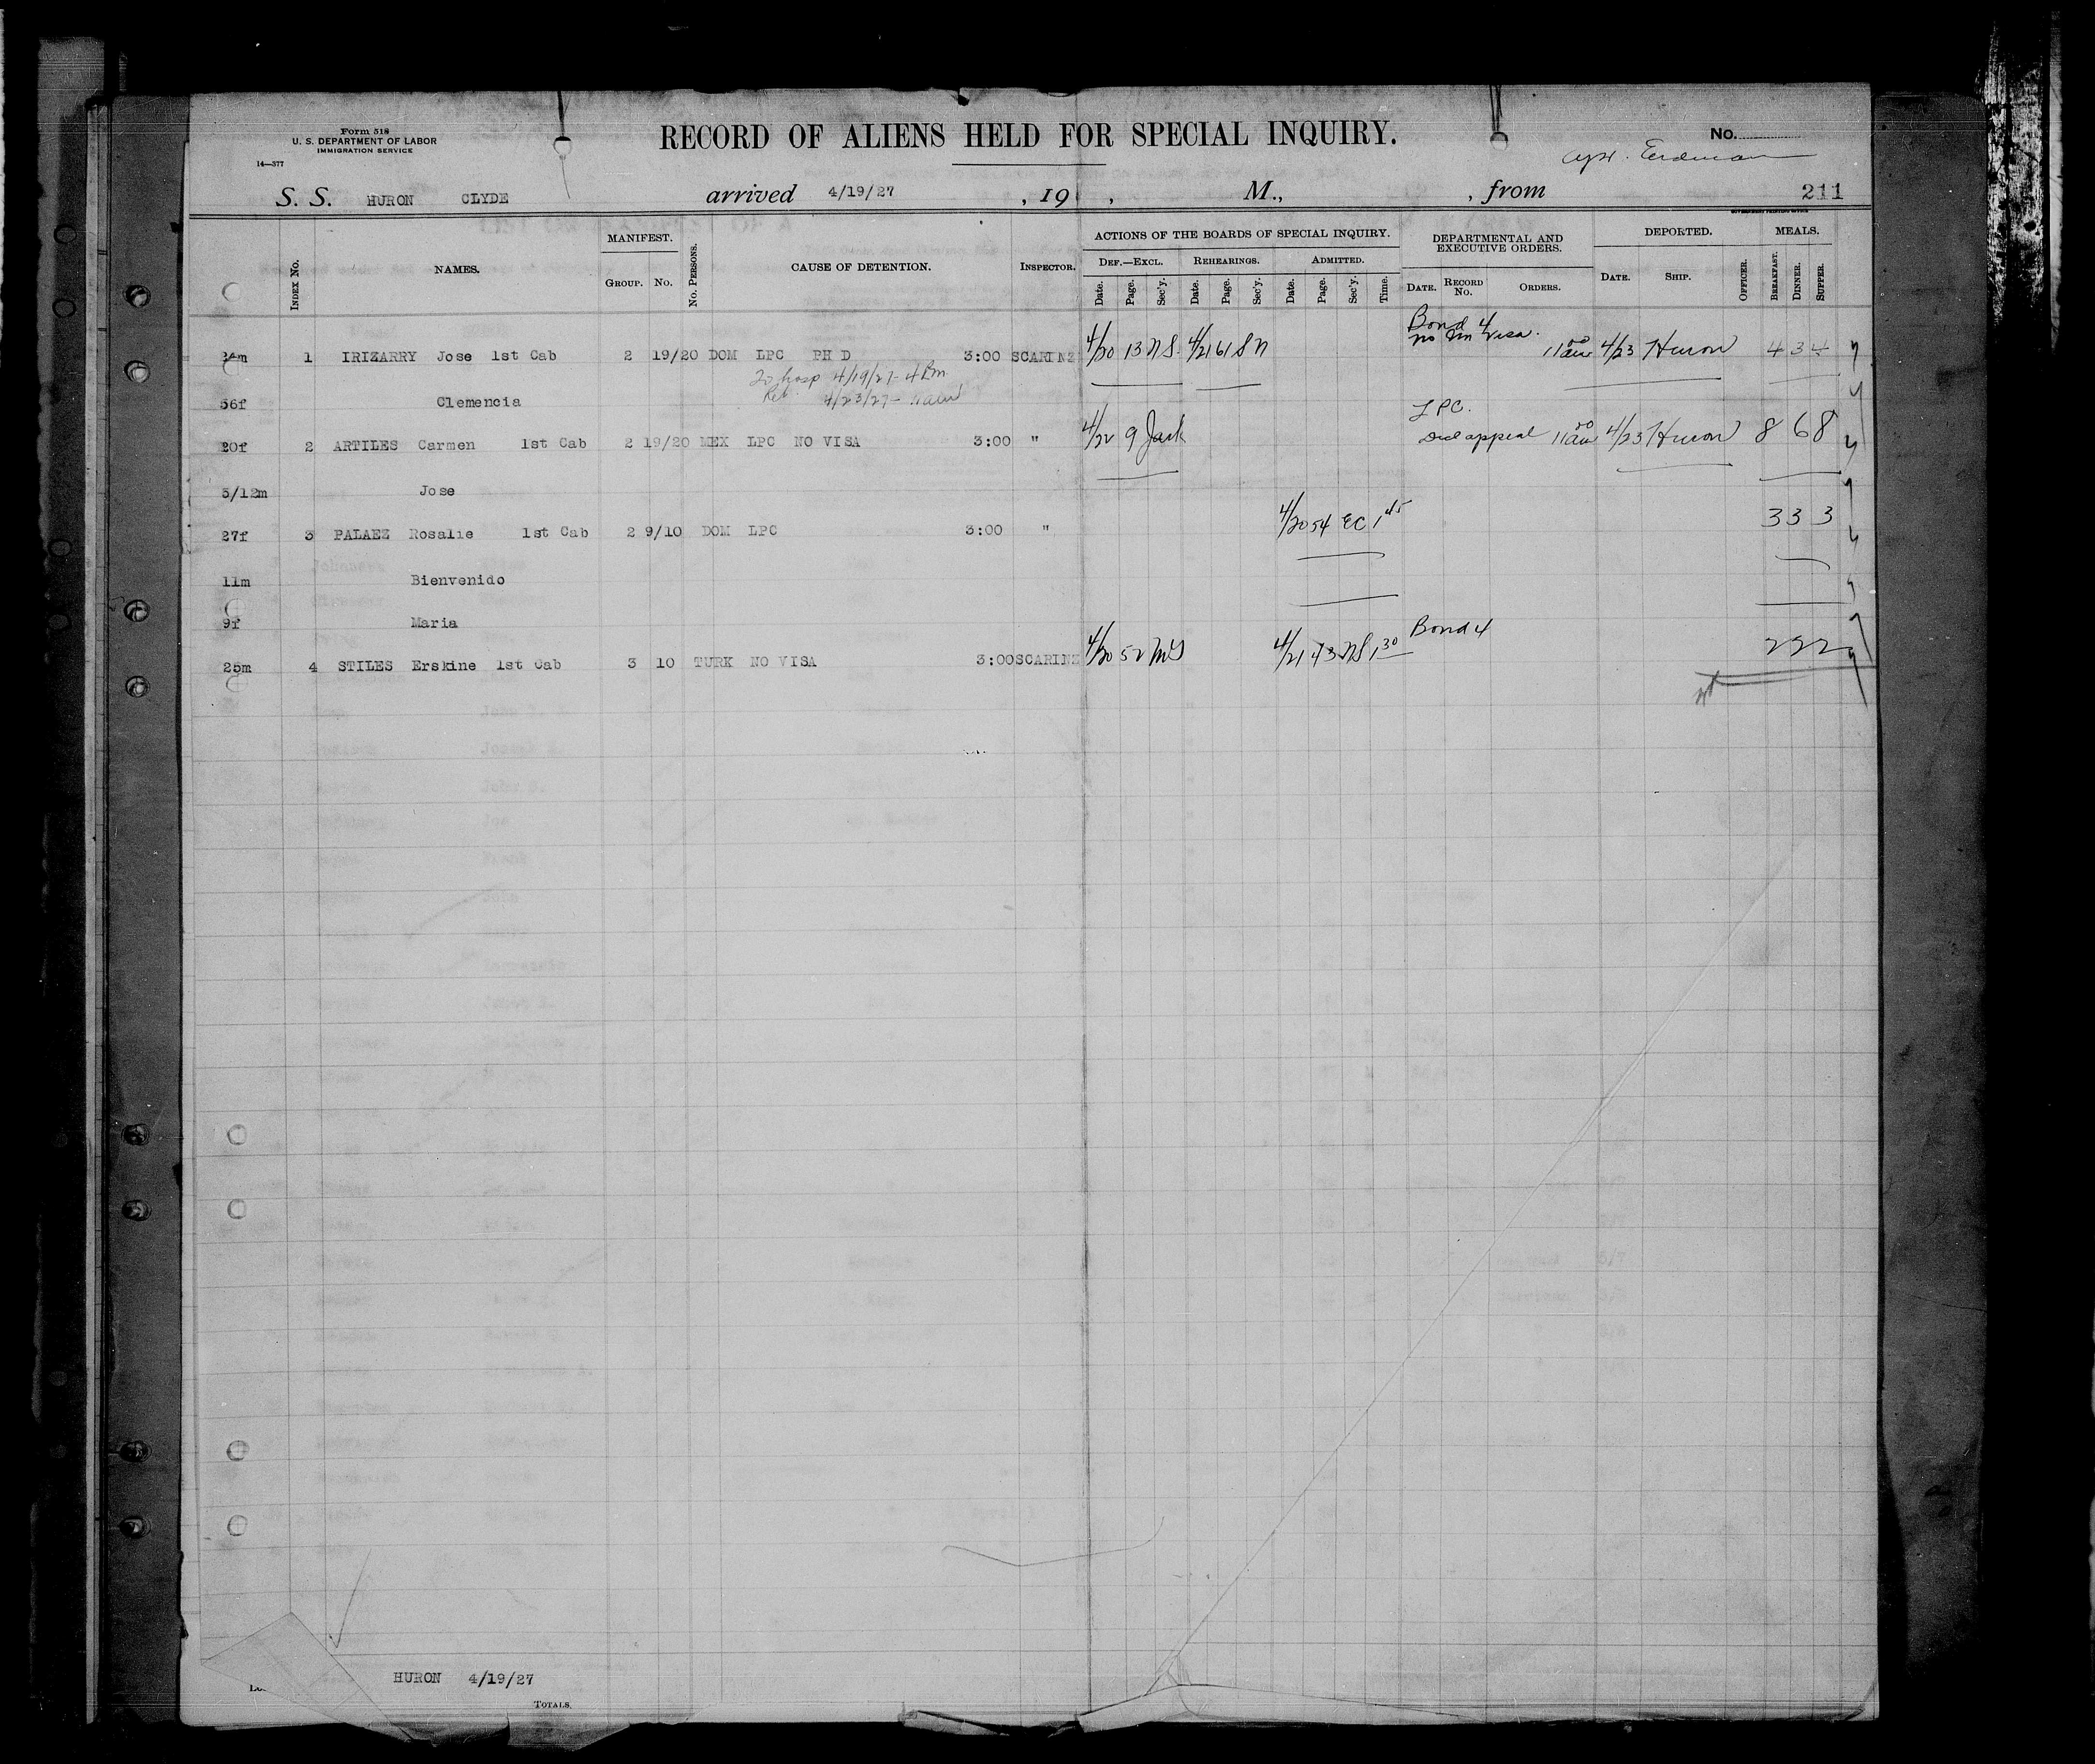 Form 518
U. S. DEPARTMENT OF LABOR
IMMIGRATION SERVICE
14—377
RECORD OF ALIENS HELD FOR SPECIAL INQUIRY.
No.
S. S. HURON CLYDE arrived 4/19/27 , 19 , M., , from 211
GOVERNMENT PRINTING OFFICE
INDEX No. NAMES. MANIFEST. GROUP. No. No. PERSONS. CAUSE OF DETENTION. INSPECTOR. ACTIONS OF THE BOARDS OF SPECIAL INQUIRY. DEF.—EXCL. Date. Page. Sec'y. REHEARINGS. Date. Page. Sec'y. ADMITTED. Date. Page. Sec'y. Time. DEPARTMENTAL AND EXECUTIVE ORDERS. DATE. RECORD No. ORDERS. DEPORTED. DATE. SHIP. OFFICER. MEALS. BREAKFAST. DINNER. SUPPER.
Bond 4
no Im Visa.
1 IRIZARRY Jose 1st Cab 2 19/20 DOM LPC PH D 3:00 SCARINZ 4/20 13 NS 4/21 61 SN 11 00 am 4/23 Huron 4 3 4
To hosp 4/19/27 - 4 Pm
Ret 4/23/27 - 11 am
56f Clemencia
LPC.
20f 2 ARTILES Carmen 1st Cab 2 19/20 MEX LPC NO VISA 3:00 " 4/22 9 Did appeal 11 00 am 4/23 Huron 8 6 8
3/12m Jose
27f 3 PALAEZ Rosalie 1st Cab 2 9/10 DOM LPC 3:00 " 4/20 54 EC 1 45 3 3 3
11m Bienvenido
9f Maria
25m 4 STILES Erskine 1st Cab 3 10 TURK NO VISA 3:00 SCARINZ 4/20 52 4/21 73 NS 1 30 Bond 4 2 2 2
HURON 4/19/27
TOTALS.